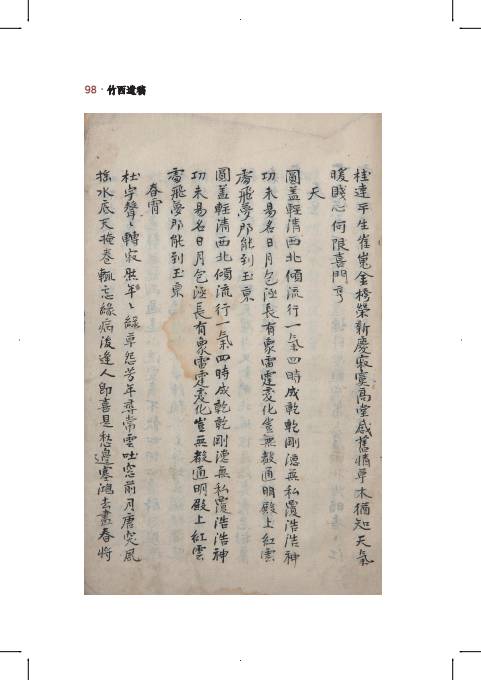 98 · 竹西遺稿
桂連平生崔嵬金榜榮新慶寂寞高堂感舊情草木猶知天氣
暖賤心何限喜門亨
天
圓盖輕清西北傾流行一氣四時成乾乾剛德無私覆浩浩神
功未易名日月包涵長有象雷霆變化豈無聲通明殿上紅雲
飛夢那能到玉京
圓盖輕清西北傾流行一氣四時成乾乾剛德無私覆浩浩神
功未易名日月包涵長有象雷霆變化豈無聲通明殿上紅雲
飛夢那能到玉京
春宵
杜宇聲聲轉寂年年綠草怨芳年尋常雲吐窓前月唐突風
搖水底天掩卷輒忘緣病後逢人即喜是愁邊塞鴻去盡春將